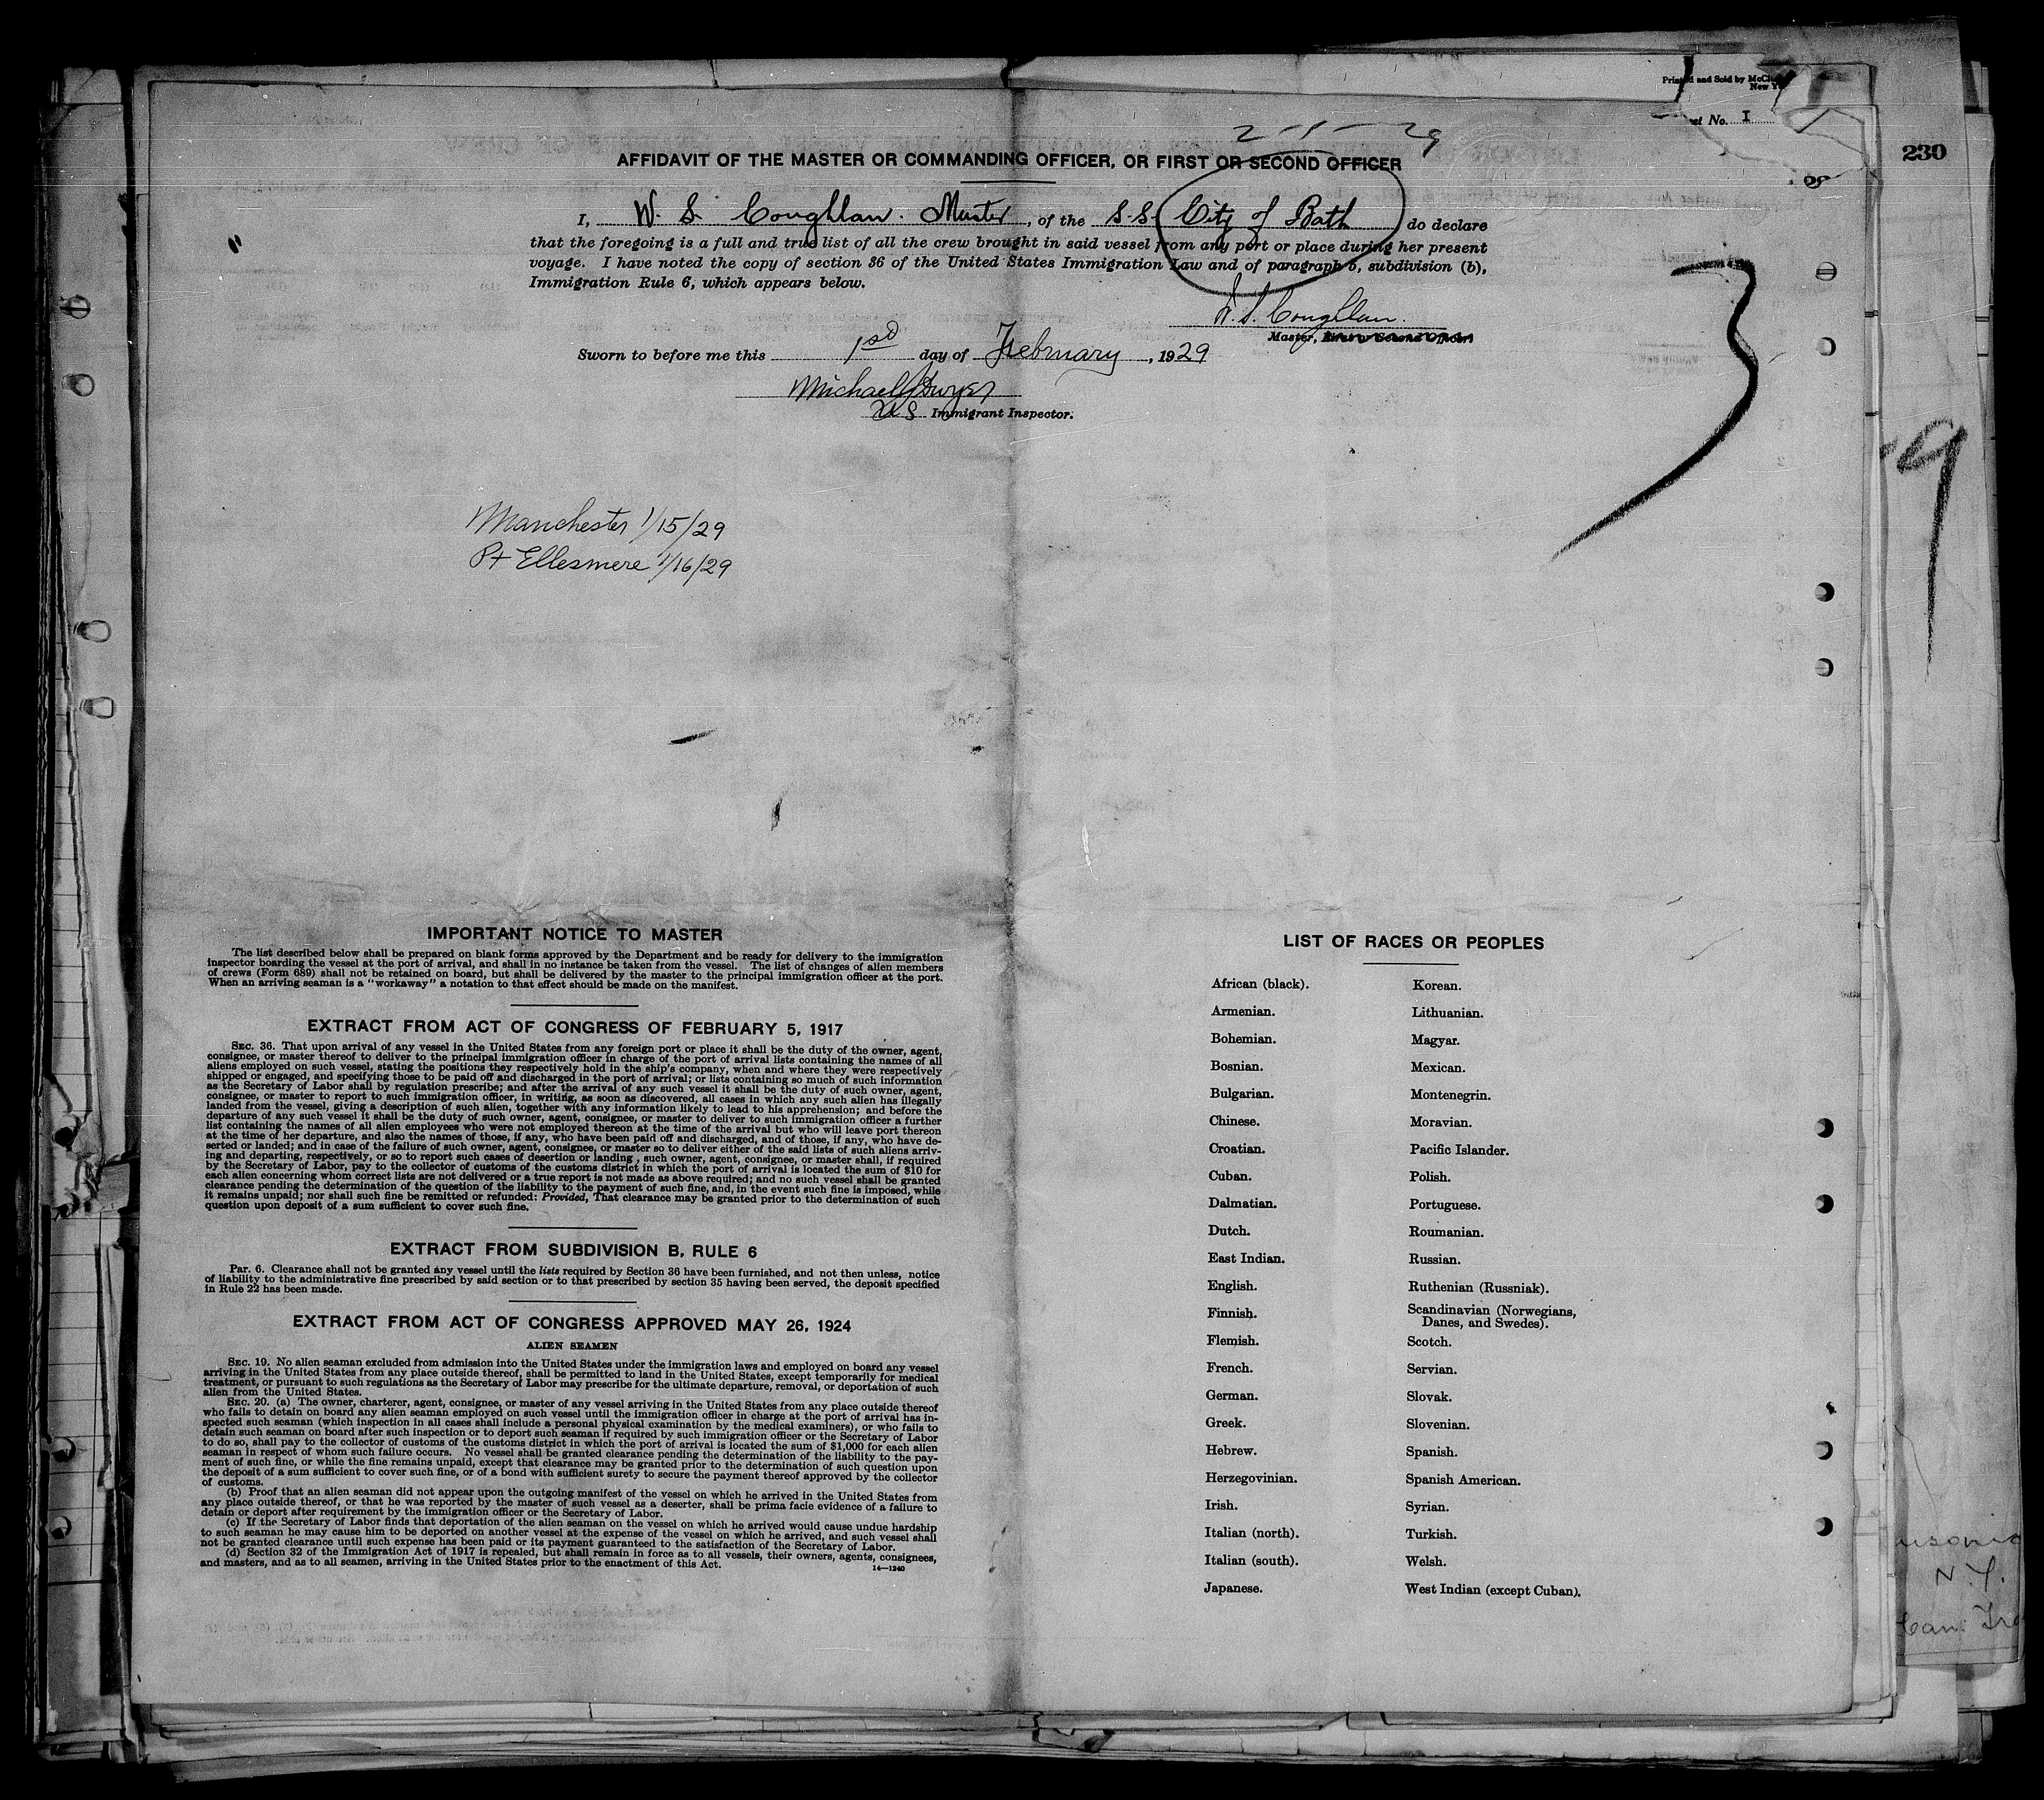 Printed and Sold by McCl
New Y
et No. I
230
2-1-29
AFFIDAVIT OF THE MASTER OR COMMANDING OFFICER, OR FIRST OR SECOND OFFICER
I, W. S. Coughlan. Master, of the S.S. City of Bath do declare
that the foregoing is a full and true list of all the crew brought in said vessel from any port or place during her present
voyage. I have noted the copy of section 36 of the United States Immigration Law and of paragraph 6, subdivision (b),
Immigration Rule 6, which appears below.
W. S. Coughlan.
Master, First or Second Officer
Sworn to before me this 1st day of February, 1929
Michael J Dwyer
US Immigrant Inspector.
3
9
Manchester 1/15/29
Pt Ellesmere 1/16/29
IMPORTANT NOTICE TO MASTER
The list described below shall be prepared on blank forms approved by the Department and be ready for delivery to the immigration
inspector boarding the vessel at the port of arrival, and shall in no instance be taken from the vessel. The list of changes of alien members
of crews (Form 689) shall not be retained on board, but shall be delivered by the master to the principal immigration officer at the port.
When an arriving seaman is a "workaway" a notation to that effect should be made on the manifest.
EXTRACT FROM ACT OF CONGRESS OF FEBRUARY 5, 1917
SEC. 36. That upon arrival of any vessel in the United States from any foreign port or place it shall be the duty of the owner, agent,
consignee, or master thereof to deliver to the principal immigration officer in charge of the port of arrival lists containing the names of all
aliens employed on such vessel, stating the positions they respectively hold in the ship's company, when and where they were respectively
shipped or engaged, and specifying those to be paid off and discharged in the port of arrival; or lists containing so much of such information
as the Secretary of Labor shall by regulation prescribe; and after the arrival of any such vessel it shall be the duty of such owner, agent,
consignee, or master to report to such immigration officer, in writing, as soon as discovered, all cases in which any such alien has illegally
landed from the vessel, giving a description of such alien, together with any information likely to lead to his apprehension; and before the
departure of any such vessel it shall be the duty of such owner, agent, consignee, or master to deliver to such immigration officer a further
list containing the names of all alien employees who were not employed thereon at the time of the arrival but who will leave port thereon
at the time of her departure, and also the names of those, if any, who have been paid off and discharged, and of those, if any, who have de-
serted or landed; and in case of the failure of such owner, agent, consignee, or master so to deliver either of the said lists of such aliens arriv-
ing and departing, respectively, or so to report such cases of desertion or landing, such owner, agent, consignee, or master shall, if required
by the Secretary of Labor, pay to the collector of customs of the customs district in which the port of arrival is located the sum of $10 for
each alien concerning whom correct lists are not delivered or a true report is not made as above required; and no such vessel shall be granted
clearance pending the determination of the question of the liability to the payment of such fine, and, in the event such fine is imposed, while
it remains unpaid; nor shall such fine be remitted or refunded: Provided, That clearance may be granted prior to the determination of such
question upon deposit of a sum sufficient to cover such fine.
EXTRACT FROM SUBDIVISION B, RULE 6
Par. 6. Clearance shall not be granted any vessel until the lists required by Section 36 have been furnished, and not then unless, notice
of liability to the administrative fine prescribed by said section or to that prescribed by section 35 having been served, the deposit specified
in Rule 22 has been made.
EXTRACT FROM ACT OF CONGRESS APPROVED MAY 26, 1924
ALIEN SEAMEN
SEC. 19. No alien seaman excluded from admission into the United States under the immigration laws and employed on board any vessel
arriving in the United States from any place outside thereof, shall be permitted to land in the United States, except temporarily for medical
treatment, or pursuant to such regulations as the Secretary of Labor may prescribe for the ultimate departure, removal, or deportation of such
alien from the United States.
SEC. 20. (a) The owner, charterer, agent, consignee, or master of any vessel arriving in the United States from any place outside thereof
who fails to detain on board any alien seaman employed on such vessel until the immigration officer in charge at the port of arrival has in-
spected such seaman (which inspection in all cases shall include a personal physical examination by the medical examiners), or who fails to
detain such seaman on board after such inspection or to deport such seaman if required by such immigration officer or the Secretary of Labor
to do so, shall pay to the collector of customs of the customs district in which the port of arrival is located the sum of $1,000 for each alien
seaman in respect of whom such failure occurs. No vessel shall be granted clearance pending the determination of the liability to the pay-
ment of such fine, or while the fine remains unpaid, except that clearance may be granted prior to the determination of such question upon
the deposit of a sum sufficient to cover such fine, or of a bond with sufficient surety to secure the payment thereof approved by the collector
of customs.
(b) Proof that an alien seaman did not appear upon the outgoing manifest of the vessel on which he arrived in the United States from
any place outside thereof, or that he was reported by the master of such vessel as a deserter, shall be prima facie evidence of a failure to
detain or deport after requirement by the immigration officer or the Secretary of Labor.
(c) If the Secretary of Labor finds that deportation of the alien seaman on the vessel on which he arrived would cause undue hardship
to such seaman he may cause him to be deported on another vessel at the expense of the vessel on which he arrived, and such vessel shall
not be granted clearance until such expense has been paid or its payment guaranteed to the satisfaction of the Secretary of Labor.
(d) Section 32 of the Immigration Act of 1917 is repealed, but shall remain in force as to all vessels, their owners, agents, consignees,
and masters, and as to all seamen, arriving in the United States prior to the enactment of this Act.
14—1240
LIST OF RACES OR PEOPLES
African (black).
Armenian.
Bohemian.
Bosnian.
Bulgarian.
Chinese.
Croatian.
Cuban.
Dalmatian.
Dutch.
East Indian.
English.
Finnish.
Flemish.
French.
German.
Greek.
Hebrew.
Herzegovinian.
Irish.
Italian (north).
Italian (south).
Japanese.
Korean.
Lithuanian.
Magyar.
Mexican.
Montenegrin.
Moravian.
Pacific Islander.
Polish.
Portuguese.
Roumanian.
Russian.
Ruthenian (Russniak).
Scandinavian (Norwegians,
Danes, and Swedes).
Scotch.
Servian.
Slovak.
Slovenian.
Spanish.
Spanish American.
Syrian.
Turkish.
Welsh.
West Indian (except Cuban).
N.Y.